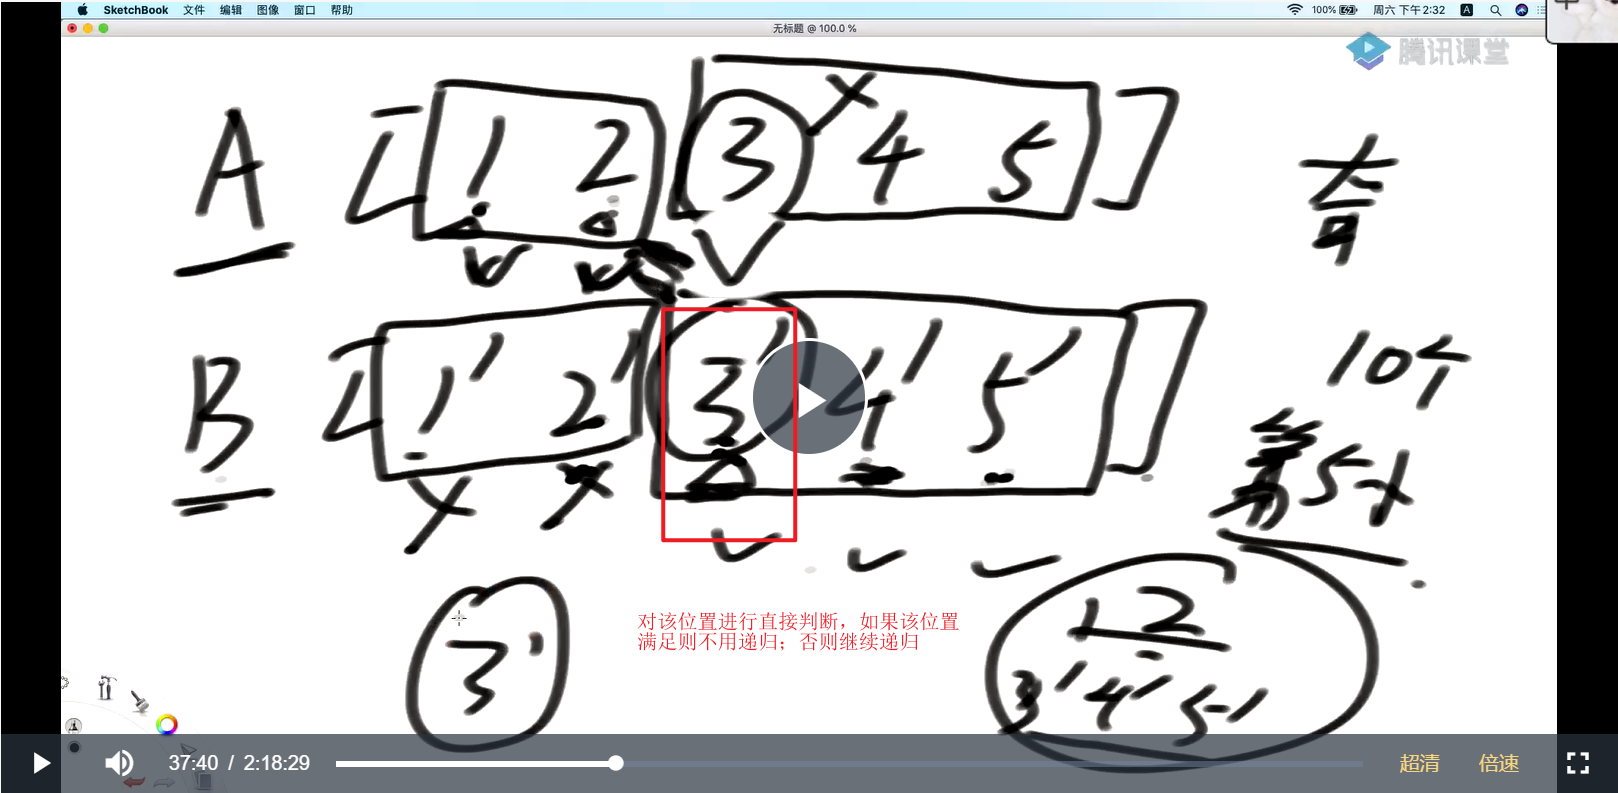 SketchBook 文件 编辑 图像 窗口 帮助 100% 周六 下午2:32 A
无标题 @ 100.0 %
腾讯课堂
A [ 1 2 3 4 5 ]
B [ 1' 2' 3' 4' 5' ]
10个
第5小
3'
1 2
3' 4' 5'
对该位置进行直接判断，如果该位置
满足则不用递归；否则继续递归
37:40 / 2:18:29 超清 倍速